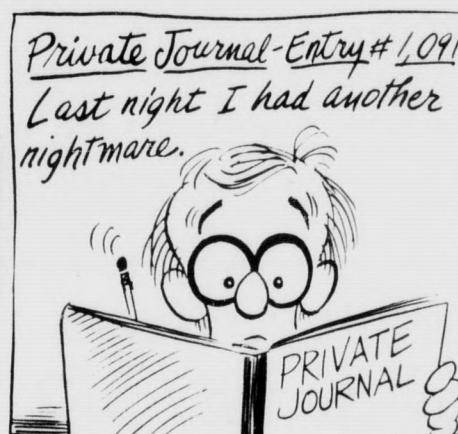 Private Journal-Entry # 1,091
Last night I had another
nightmare.
PRIVATE
JOURNAL